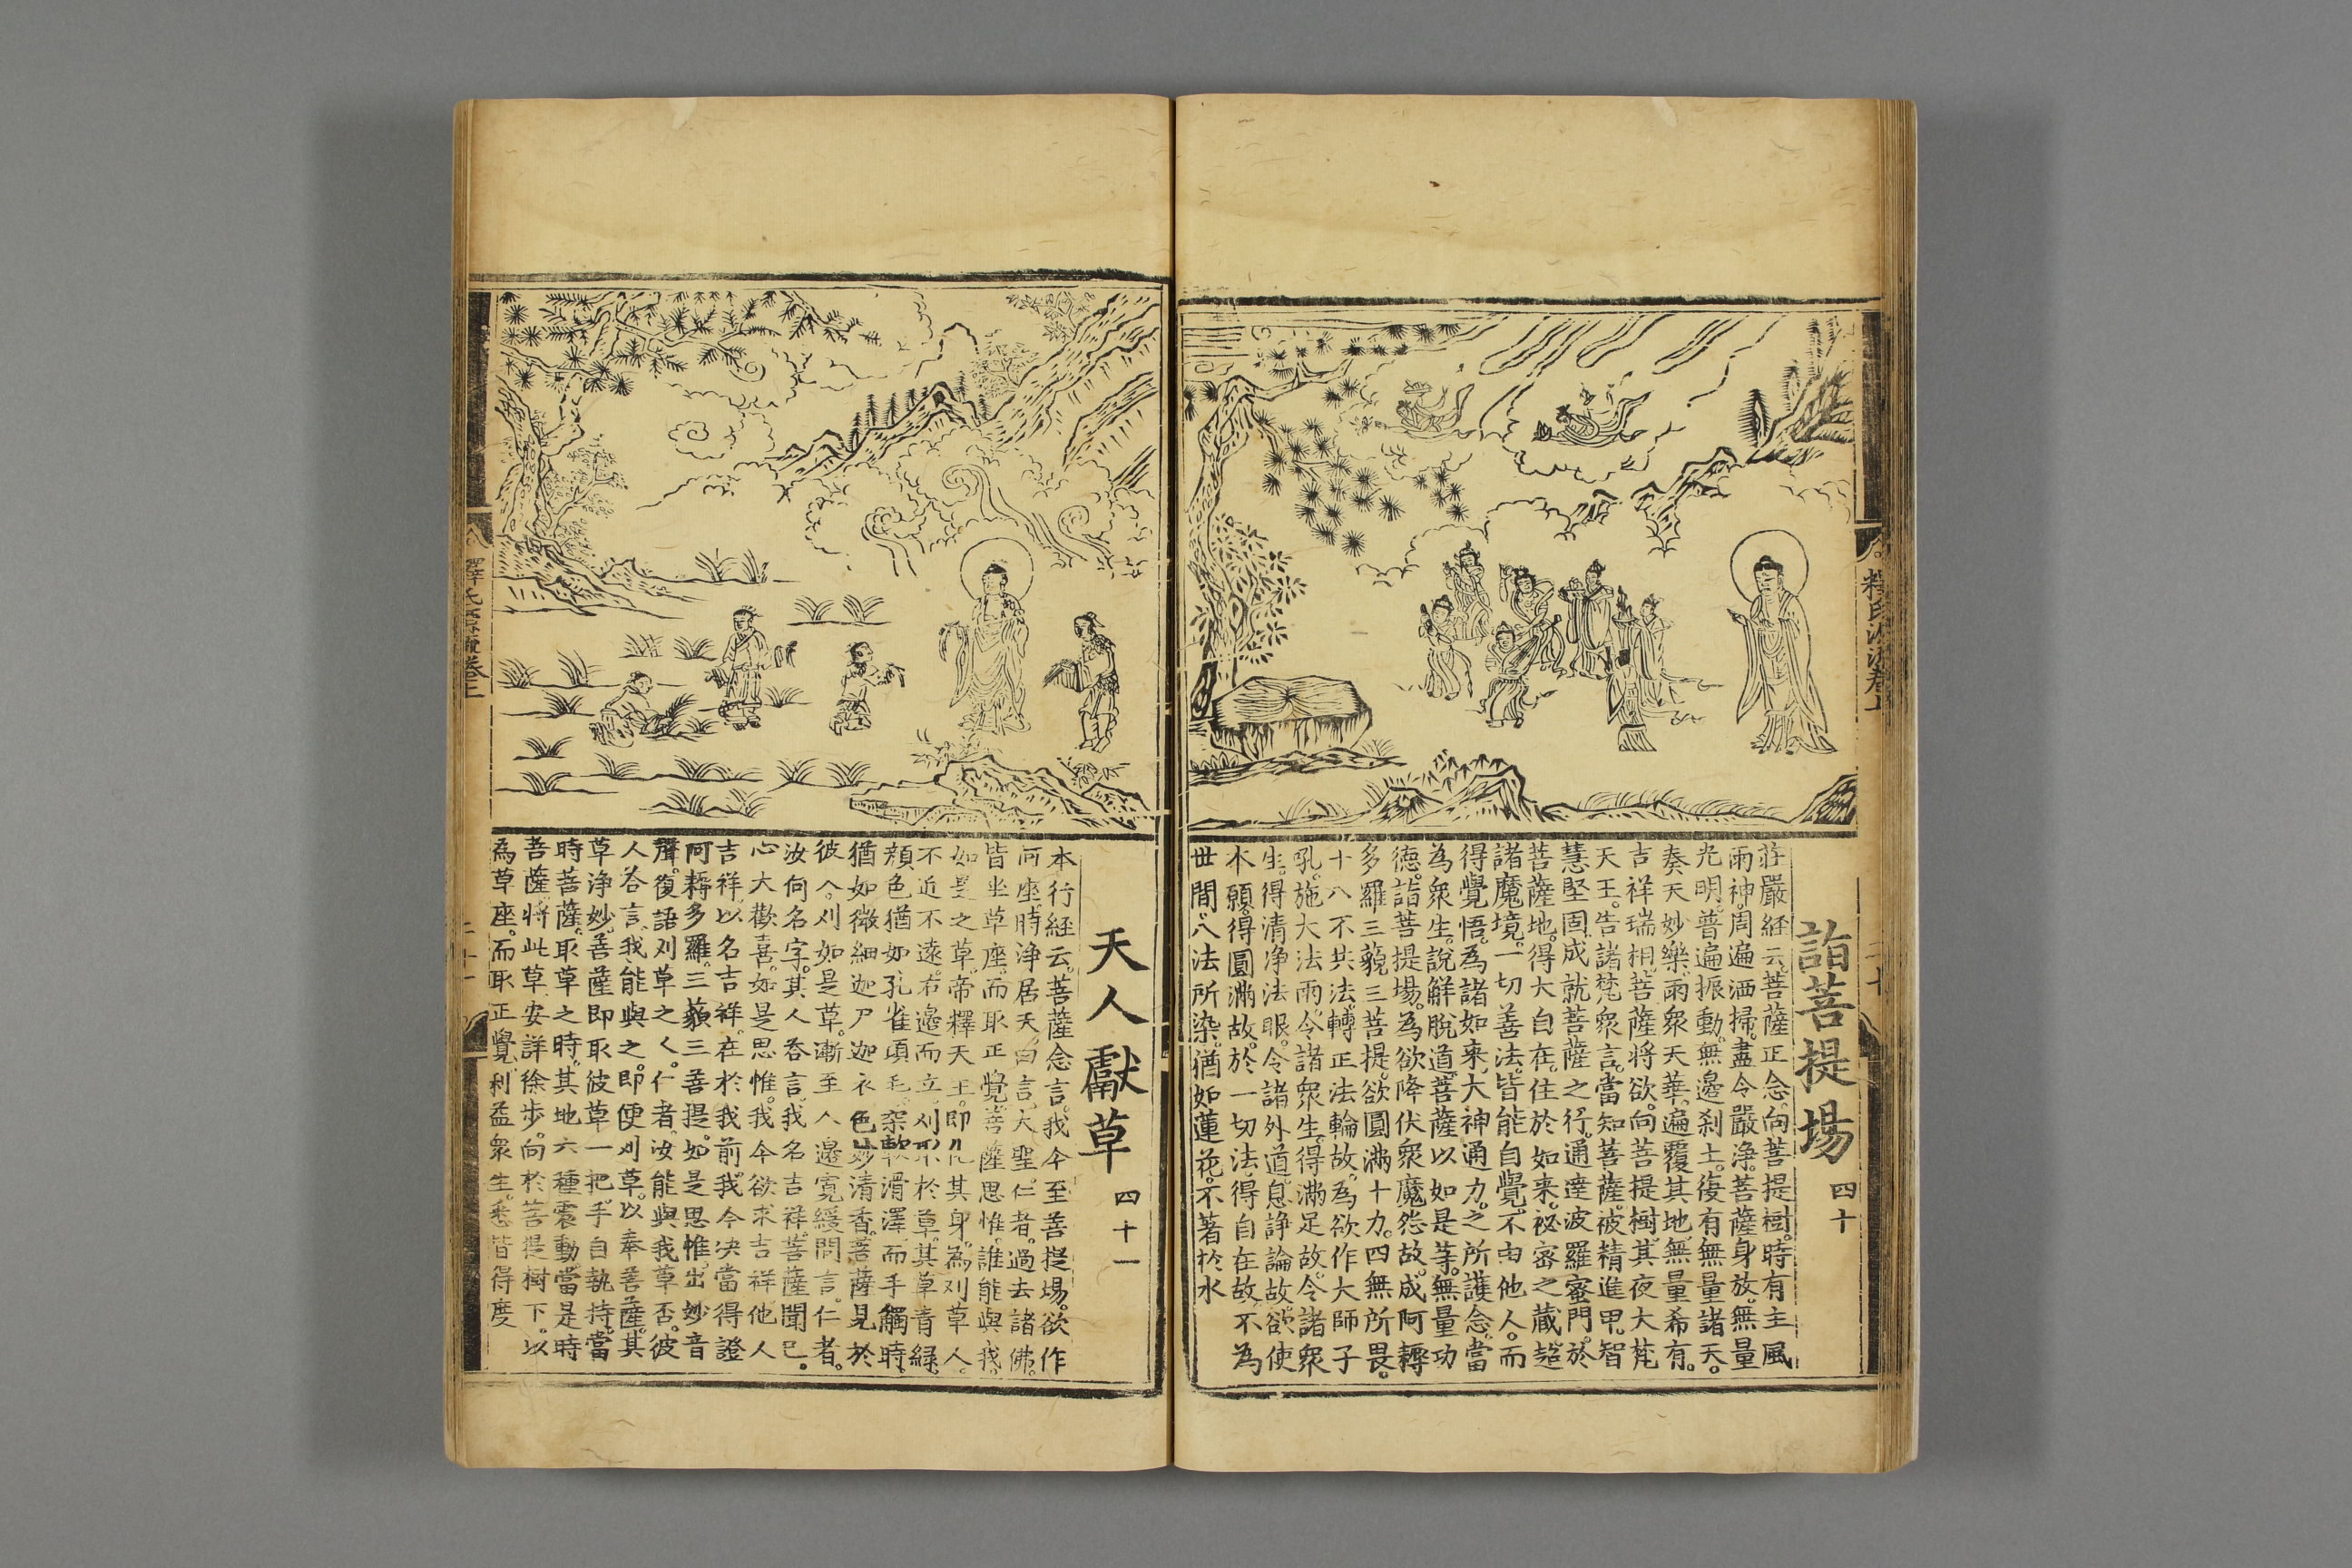 釋氏源流卷上
詣菩提場 四十
莊嚴経云。菩薩正念。向菩提樹。時有主風
雨神。周遍洒掃。盡令嚴浄。菩薩身放無量
光明。普遍振動。無邉刹土。復有無量諸天。
奏天妙樂。雨衆天華。遍覆其地。無量希有。
吉祥瑞相。菩薩将欲。向菩提樹。其夜大梵
天王。告諸梵衆言。當知菩薩。被精進甲。智
慧堅固。成就菩薩之行。通達波羅蜜門。於
菩薩地。得大自在。住於如来。祕宻之藏。超
諸魔境。一切善法。皆能自覺。不由他人。而
得覺悟。為諸如来。大神通力。之所護念。當
為衆生。說解脫道。菩薩以如是等。無量功
徳。詣菩提場。為欲降伏衆魔怨故。成阿耨
多羅三藐三菩提。欲圓滿十力。四無所畏。
十八不共法。轉正法輪故。為欲作大師子
吼。施大法雨。令諸衆生。得滿足故。令諸衆
生。得清浄法眼。令諸外道。息諍論故。欲使
本願。得圓滿故。於一切法。得自在故。不為
世間八法所染。猶如蓮花。不著於水
天人獻草 四十一
本行経云。菩薩念言。我今至菩提場。欲作
何座。時浄居天。白言。大聖。仁者。過去諸佛。
皆坐草座。而取正覺。菩薩思惟。誰能與我。
如是之草。帝釋天王。即化其身。為刈草人。
不近不遠。右邉而立。刈取於草。其草青緑。
顔色猶如孔雀項毛。柔軟滑澤。而手觸時。
猶如微細迦尸迦衣。色妙清香。菩薩見於
彼人。刈如是草。漸至人邉。寛緩問言。仁者。
汝何名字。其人荅言。我名吉祥。菩薩聞已。
心大歡喜。如是思惟。我今欲求吉祥。他人
吉祥。以名吉祥。在於我前。我今决當得證
阿耨多羅。三藐三菩提。如是思惟。出妙音
聲。復語刈草之人。仁者。汝能與我草否。彼
人荅言。我能與之。即便刈草。以奉菩薩。其
草浄妙。菩薩即取彼草一把。手自執持。當
時菩薩。取草之時。其地六種震動。當是時
菩薩。将此草。安詳徐歩。向於菩提樹下。以
為草座。而取正覺。利益衆生。悉皆得度
釋氏源流卷上